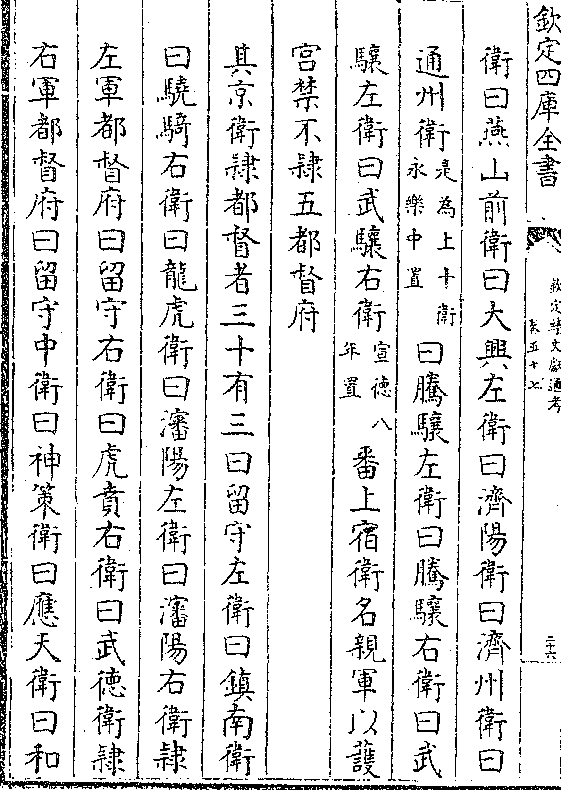 欽定四庫全書
欽定續文獻通考
卷五十七
二十六
衛曰燕山前衛曰大興左衛曰濟陽衛曰濟州衛曰
通州衛是為上十衛永樂中置曰騰驤左衛曰騰驤右衛曰武
驤左衛曰武驤右衛宣徳八年置番上宿衛名親軍以護
宫禁不隸五都督府
其京衛隸都督者三十有三曰留守左衛曰鎮南衛
曰驍騎右衛曰龍虎衛曰瀋陽左衛曰瀋陽右衛隸
左軍都督府曰留守右衛曰虎賁右衛曰武徳衛隸
右軍都督府曰留守中衛曰神策衛曰應天衛曰和